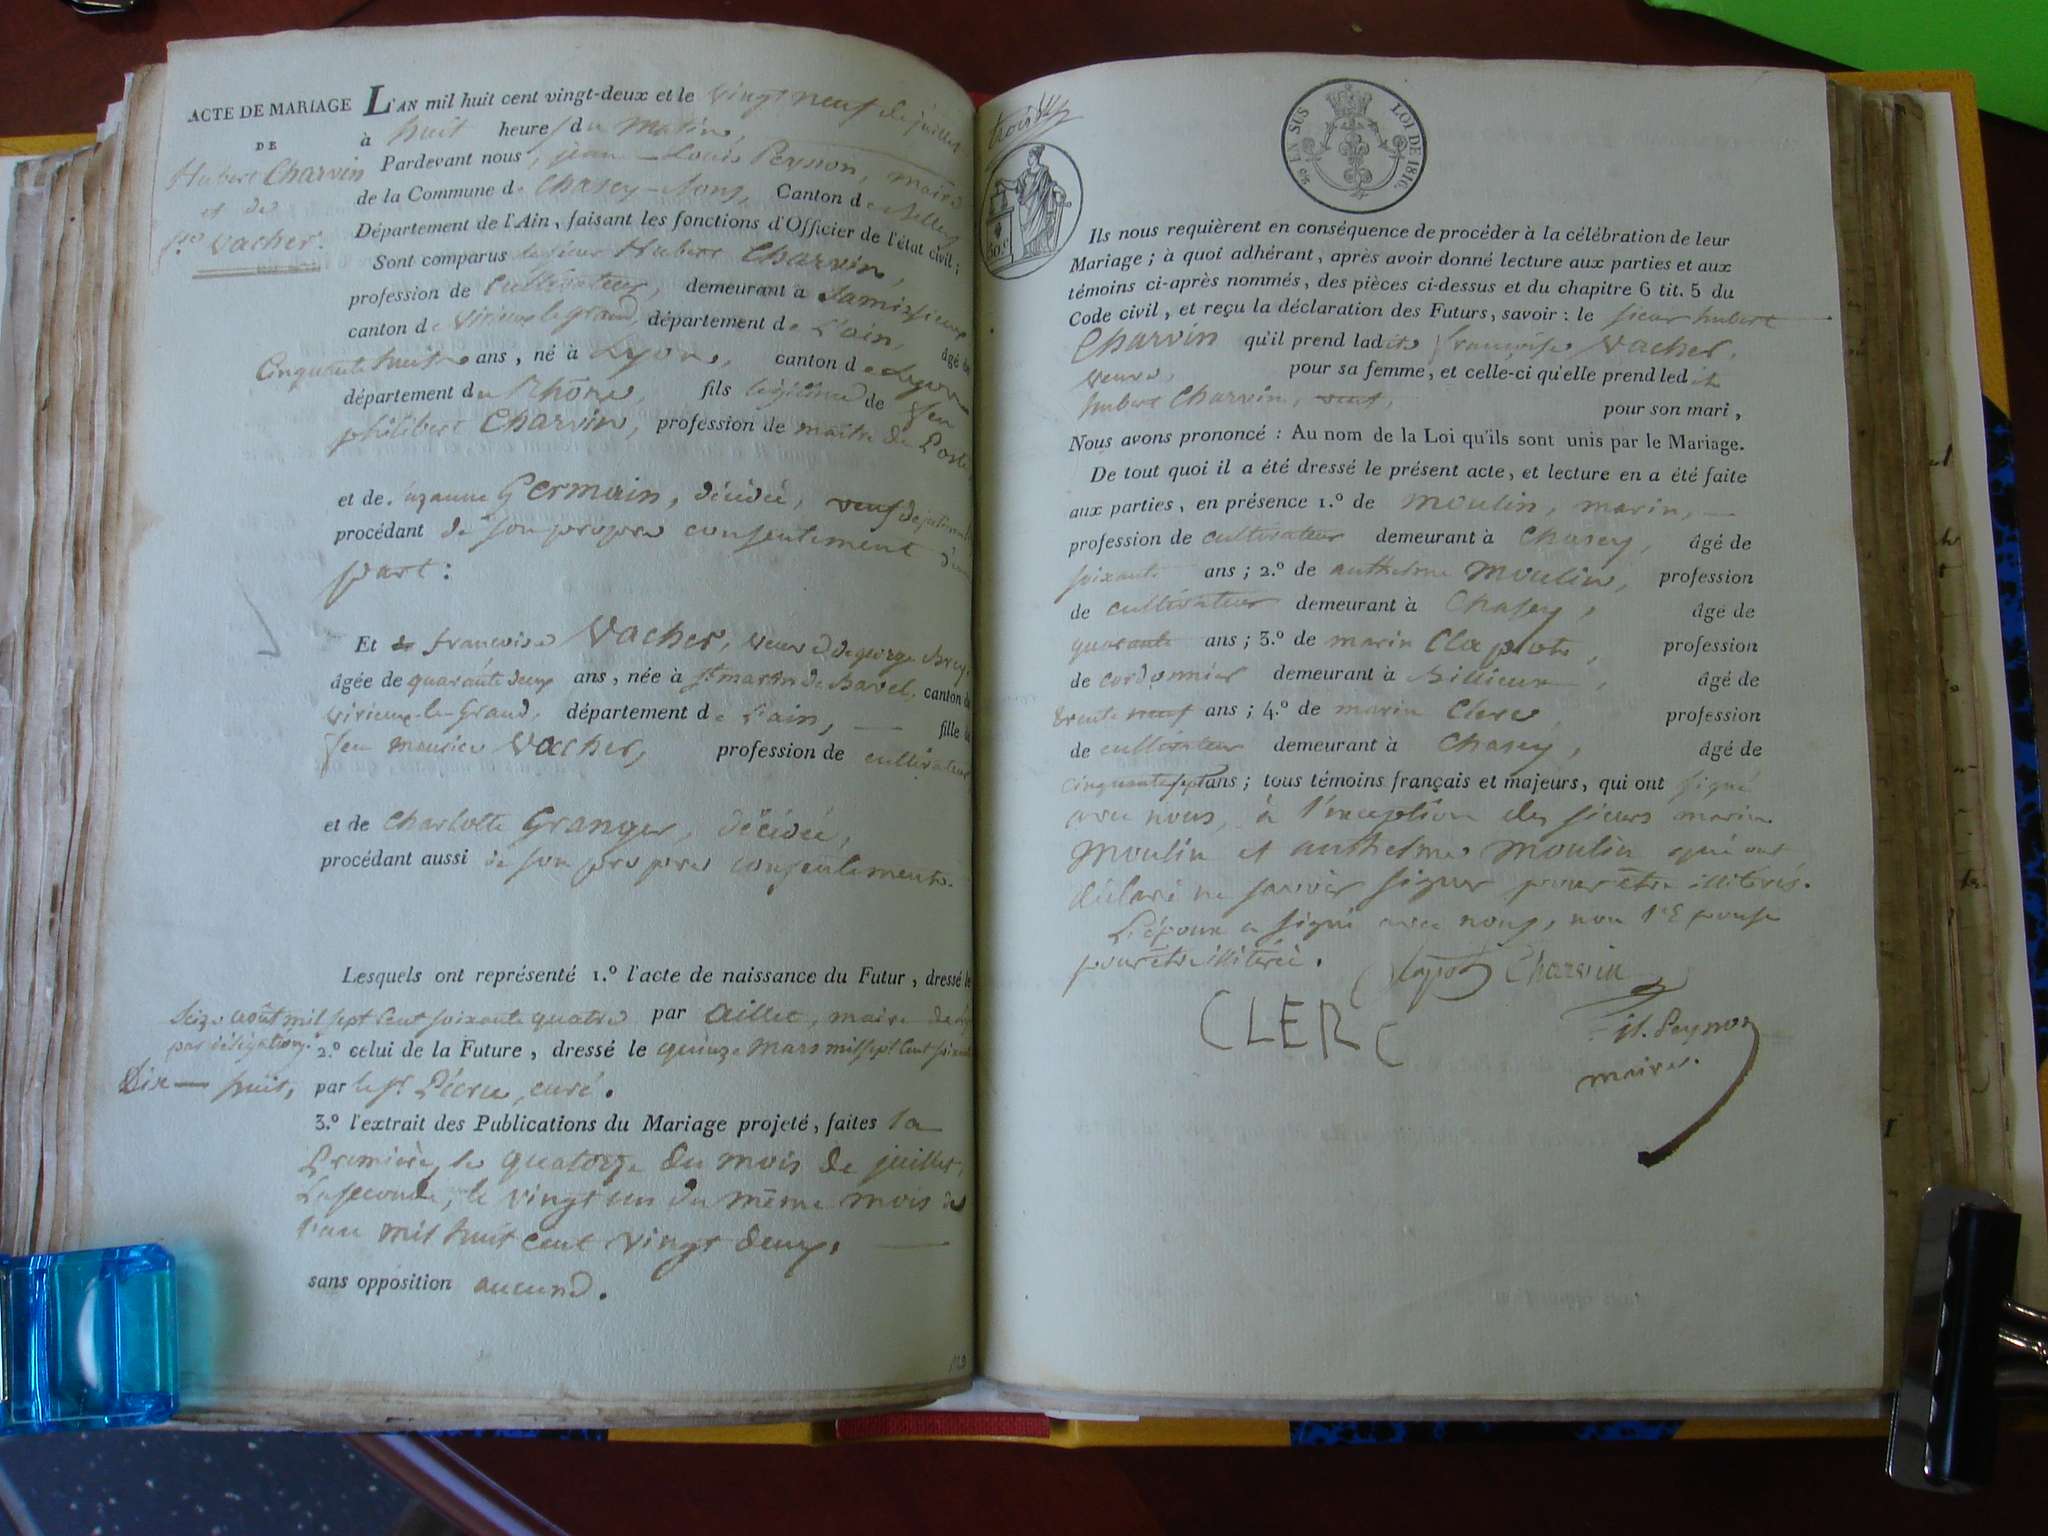 ACTE DE MARIAGE
DE
Hubert Charvin
et de
Vacher.
L'AN mil huit cent vingt-deux et le vingt neuf de juillet
à huit heures du matin,
Pardevant nous, jean-Louis Peysson, maire
de la Commune de Chasey-Bons, Canton de Belley
Département de l'Ain, faisant les fonctions d'Officier de l'état civil;
Sont comparus le sieur Hubert Charvin,
profession de Cultivateur, demeurant à
canton de virieux le grand, département de L'ain, âgé de
Cinquante huit ans, né à Lyon, canton de Lyon
département du Rhône, fils légitime de feu
philibert Charvin, profession de maître de Poste
et de suzanne Germain, décédée, veuf
procédant de son propre consentement d'une
part:
Et de francoise Vacher, veuve de george
âgée de quarante deux ans, née à st martin de Bavel, canton de
virieux-le-Grand, département de L'ain, fille de
feu maurice Vacher, profession de cultivateur,
et de Charlotte Granger, décédée,
procédant aussi de son propre consentement.
Lesquels ont représenté 1.º l'acte de naissance du Futur, dressé le
Seize août mil sept cent soixante quatre par aillet, maire de
par délégation. 2.º celui de la Future, dressé le quinze Mars mil sept cent soixante
Dix-huit, par le sr curé.
3.º l'extrait des Publications du Mariage projeté, faites la
Première, le quatorze du mois de juillet,
La seconde, le vingt un du même mois de
l'an mil huit cent vingt deux,
sans opposition aucune.
50 EN SUS LOI DE 1816.
50.c
Ils nous requièrent en conséquence de procéder à la célébration de leur
Mariage; à quoi adhérant, après avoir donné lecture aux parties et aux
témoins ci-après nommés, des pièces ci-dessus et du chapitre 6 tit. 5 du
Code civil, et reçu la déclaration des Futurs, savoir: le sieur hubert
Charvin qu'il prend ladite françoise Vacher,
veuve, pour sa femme, et celle-ci qu'elle prend ledit
hubert Charvin, veuf, pour son mari,
Nous avons prononcé: Au nom de la Loi qu'ils sont unis par le Mariage.
De tout quoi il a été dressé le présent acte, et lecture en a été faite
aux parties, en présence 1.º de moulin, marin,
profession de cultivateur demeurant à Chasey, âgé de
soixante ans; 2.º de anthelme Moulin, profession
de cultivateur demeurant à Chasey, âgé de
quarante ans; 3.º de marin Clapot, profession
de cordonnier demeurant à Billieu, âgé de
trente neuf ans; 4.º de marin Clerc, profession
de cultivateur demeurant à Chasey, âgé de
cinquante sept ans; tous témoins français et majeurs, qui ont signé
avec nous, à l'exception des sieurs marin
Moulin et anthelme Moulin qui ont
déclaré ne savoir signer pour être illitérés.
L'époux a signé avec nous, non l'Epouse
pour être illitérée.
Clapot Charvin
CLERC
jl. Peysson
maire.